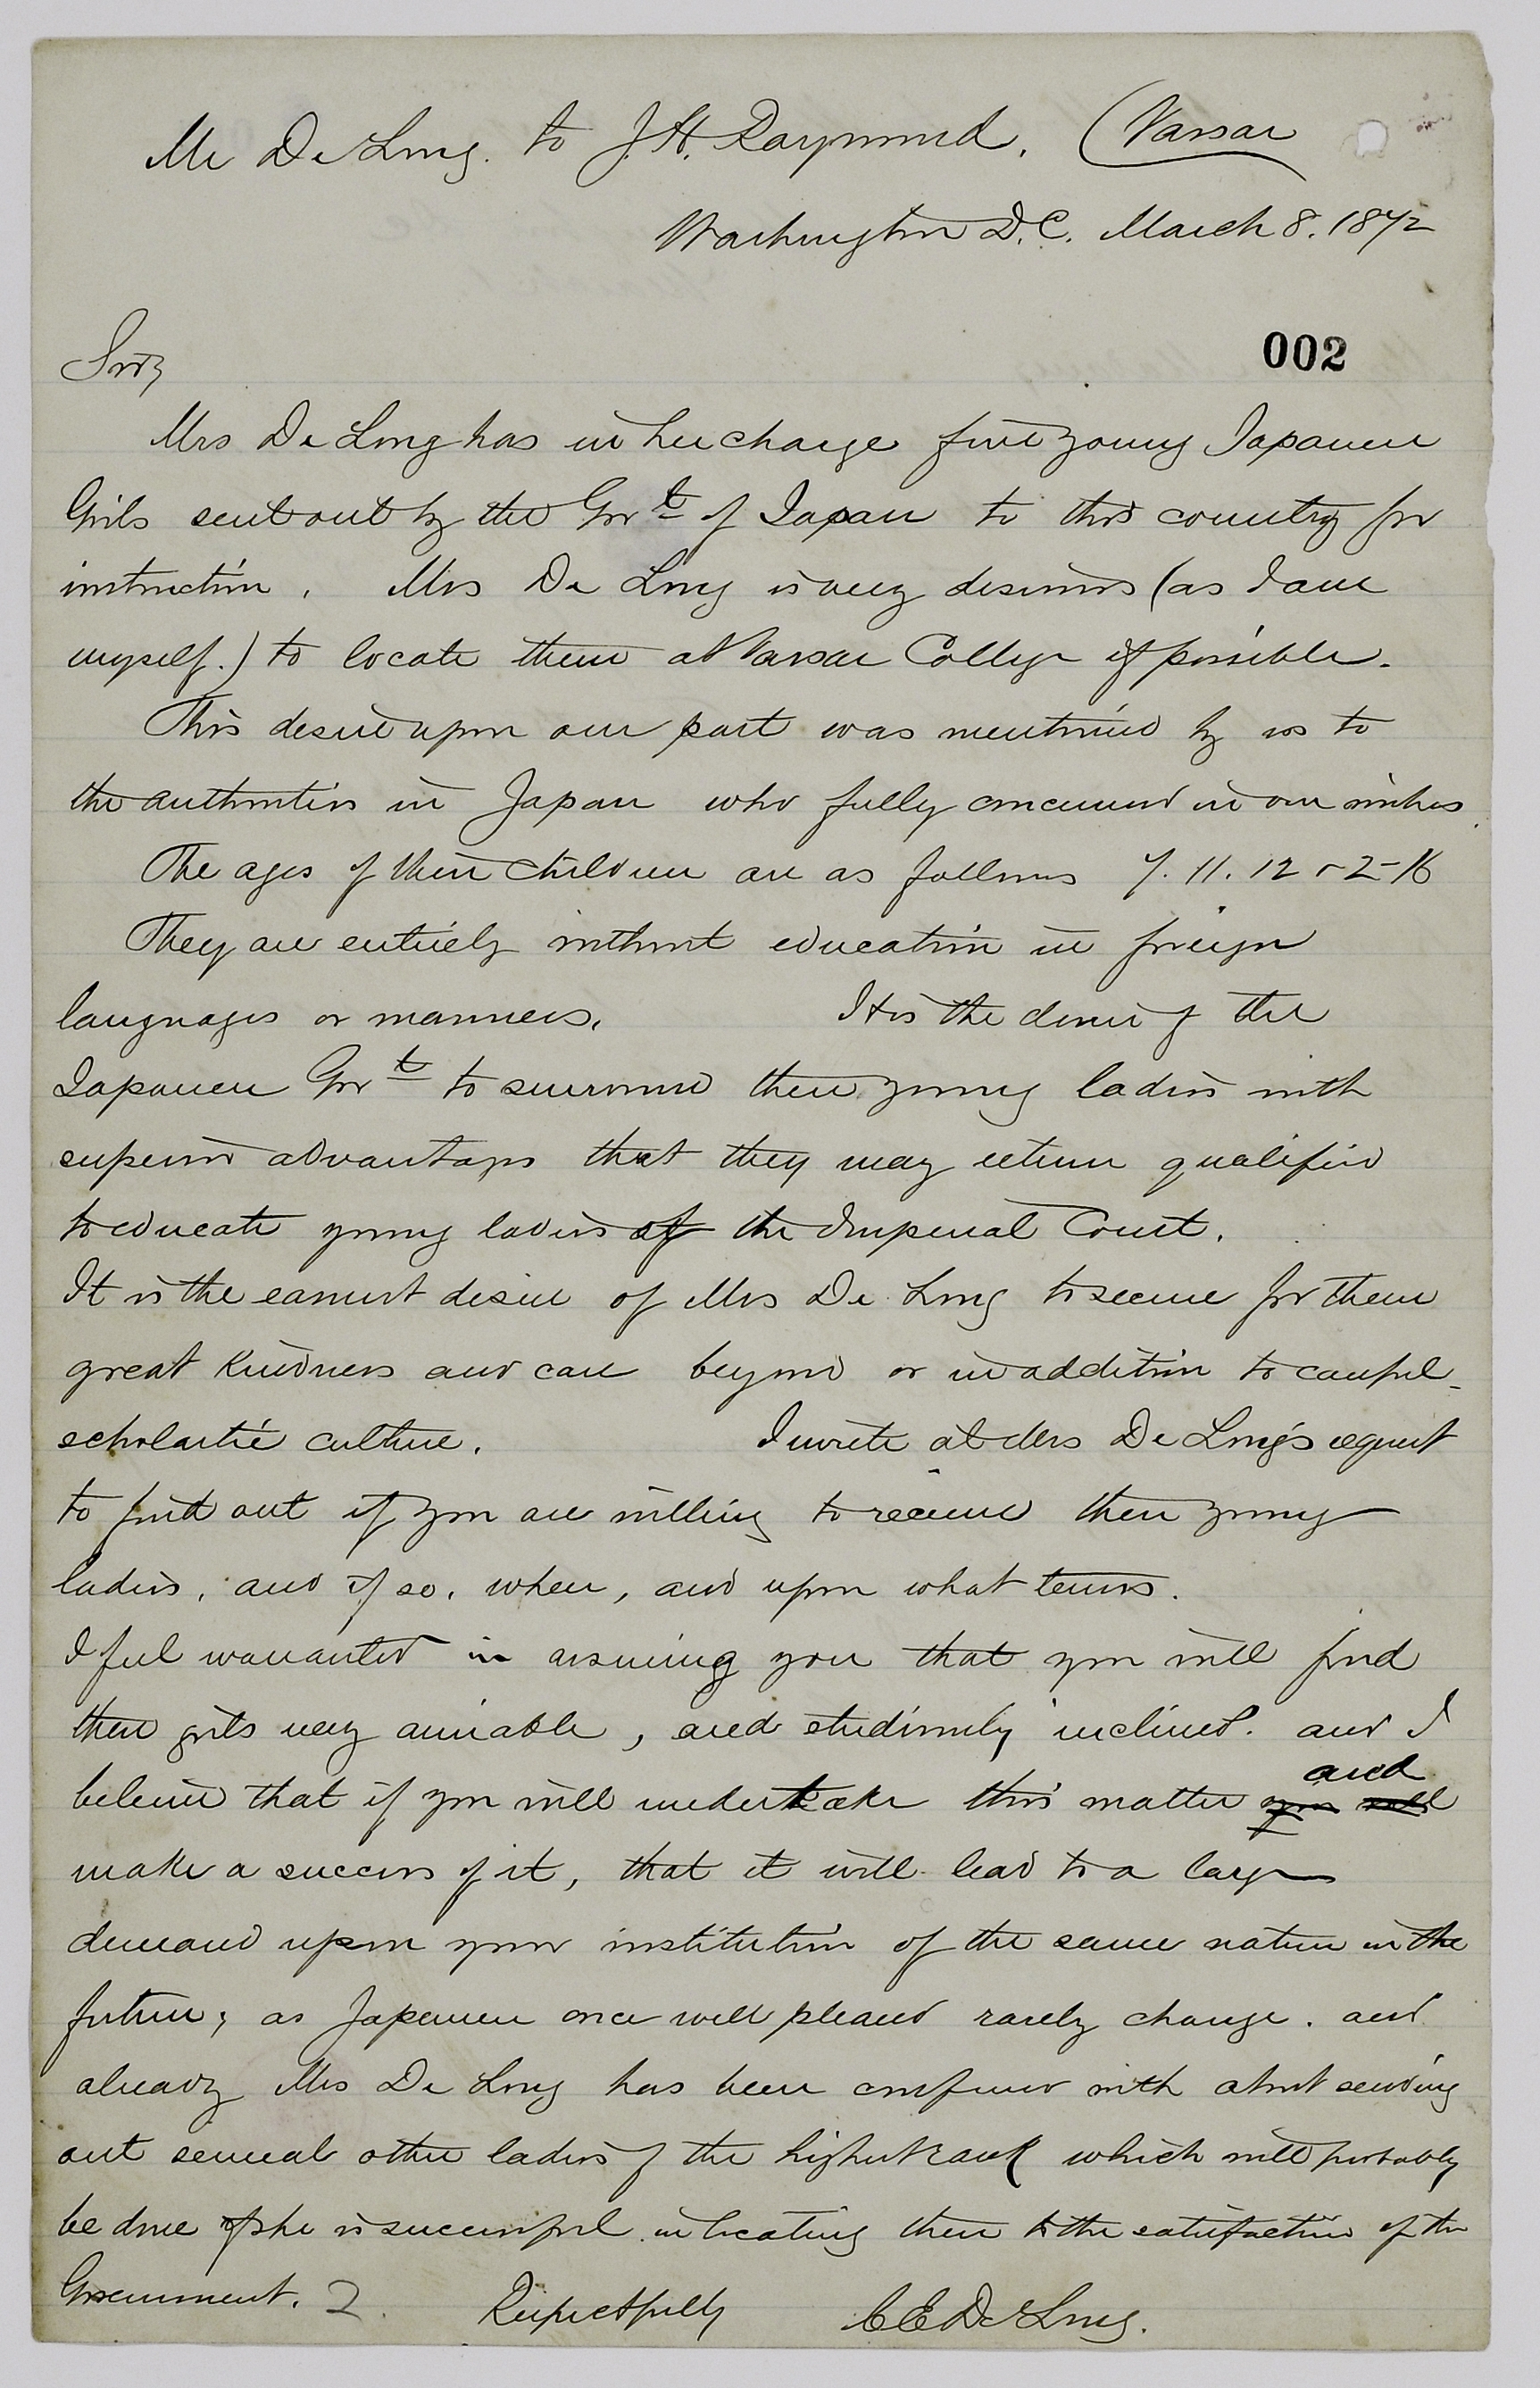 Mr De Long. to J. H. Raymond. (Vassar
Washington D.C. March 8. 1872
002
Sir,
Mrs De Long has in her charge five young Japanese
Girls sent out by the Govt of Japan to this country for
instruction. Mrs De Long is very desirous (as I am
myself.) to locate them at Vassar College if possible.
This desire upon our part was mentioned by us to
the authorities in Japan who fully concurred in our wishes.
The ages of these children are as follows 7. 11. 12 & 2-16
They are entirely without education in foreign
languages or manners. It is the desire of the
Japanese Govt to surround these young ladies with
superior advantages that they may return qualified
to educate young ladies of the Imperial Court.
It is the earnest desire of Mrs De Long to secure for them
great kindness and care beyond or in addition to careful
scholastic culture. I write at Mrs De Long's request
to find out if you are willing to receive these young
ladies, and if so, when, and upon what terms.
I feel warranted in assuring you that you will find
these girls very amiable, and studiously inclined. and I
believe that if you will undertake this matter you will and
make a success of it, that it will lead to a large
demand upon your institution of the same nature in the
future; as Japanese once well pleased rarely change. and
already Mrs De Long has been conferred with about sending
out several other ladies of the highest rank which will probably
be done if she is successful in locating these to the satisfaction of the
Government. 2. Respectfully C E De Long.